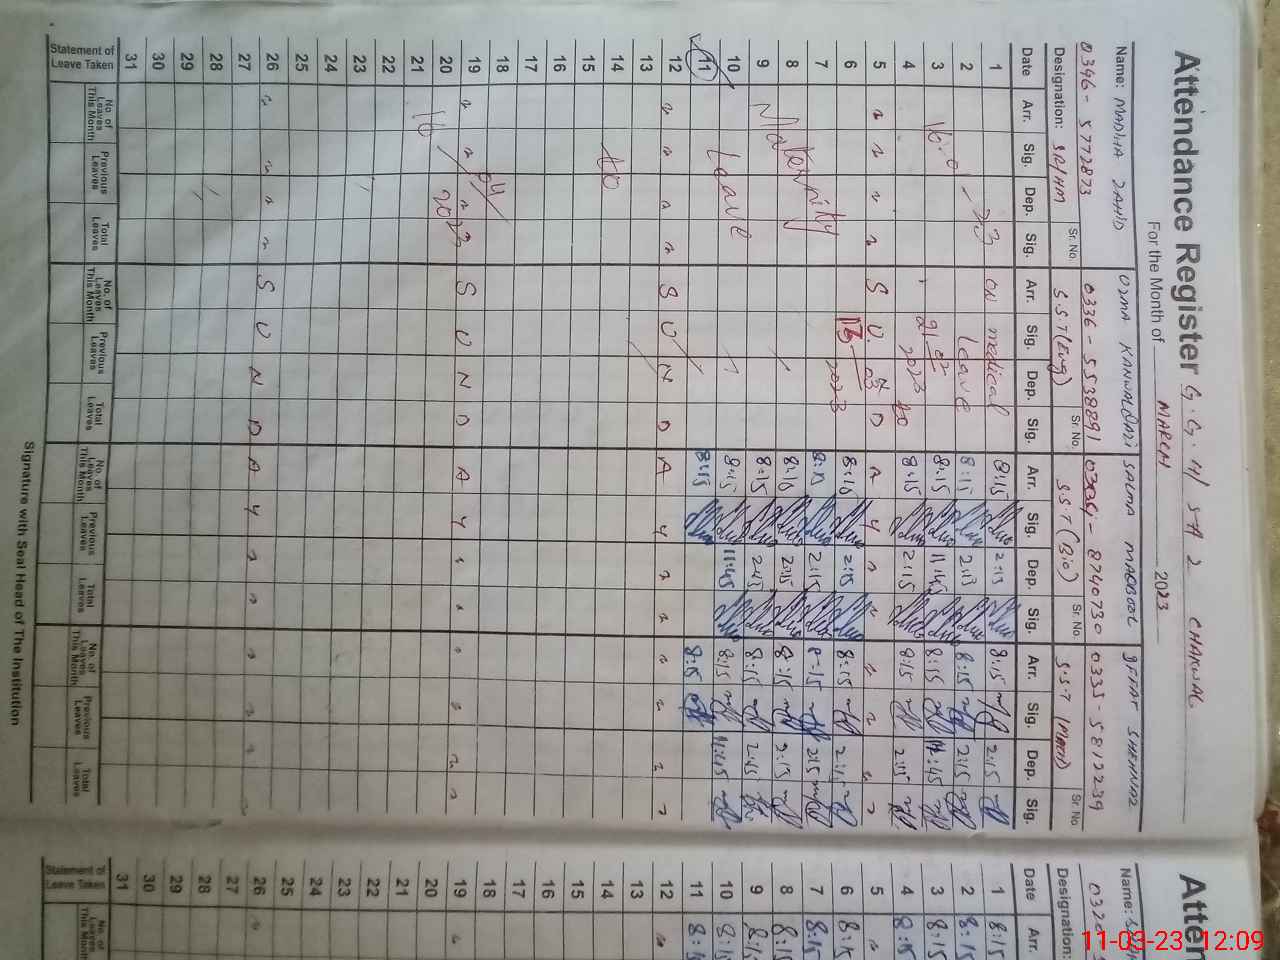 Attendance Register G.G.H/S A 2 CHAKWAL
For the Month of MARCH 2023
Name: MADIHA ZAHID
UZMA KANWAL
SALMA MAQBOOL
IFFAT SHEHNAZ
0346-5772873
0336-5538891
8740730
0335-5812239
Designation: SR/HM Sr. No.
S.S.T (Eng) Sr. No.
S.S.T (Bio) Sr. No.
S.S.T (Math) Sr. No
Date Arr. Sig. Dep. Sig. Arr. Sig. Dep. Sig. Arr. Sig. Dep. Sig. Arr. Sig. Dep. Sig.
1 on medical 8:15 2:15 8:15 2:15
2 leave 8:15 2:15 8:15 2:15
3 8:15 11:45 8:15 11:45
4 2023 to 8:15 2:15 8:15 2:15
5 S U N D A Y
6 2023 8:15 2:15 8:15 2:15
7 Maternity 8:15 2:15 8:15 2:15
8 8:10 2:15 8:15 2:15
9 8:15 2:45 8:15 2:45
10 Leave 8:15 11:45 8:15 11:45
11 8:15 8:15
12 S U N D A Y
13
14 to
15
16
17
18
19 S U N D A Y
20 16/04/2023
21
22
23
24
25
26 S U N D A Y
27
28
29
30
31
Statement of Leave Taken
No. of Leaves This Month Previous Leaves Total Leaves
No. of Leaves This Month Previous Leaves Total Leaves
No. of Leaves This Month Previous Leaves Total Leaves
No. of Leaves This Month Previous Leaves Total Leaves
Signature with Seal Head of The Institution
Atten
Name:
Designation:
Date Arr.
1 8:15
2 8:15
3 8:15
4 8:15
5
6 8:15
7 8:15
8 8:15
9 8:15
10 8:15
11 8:15
12
13
14
15
16
17
18
19
20
21
22
23
24
25
26
27
28
29
30
31
Statement of Leave Taken
No. of Leaves This Month
11-03-23 12:09